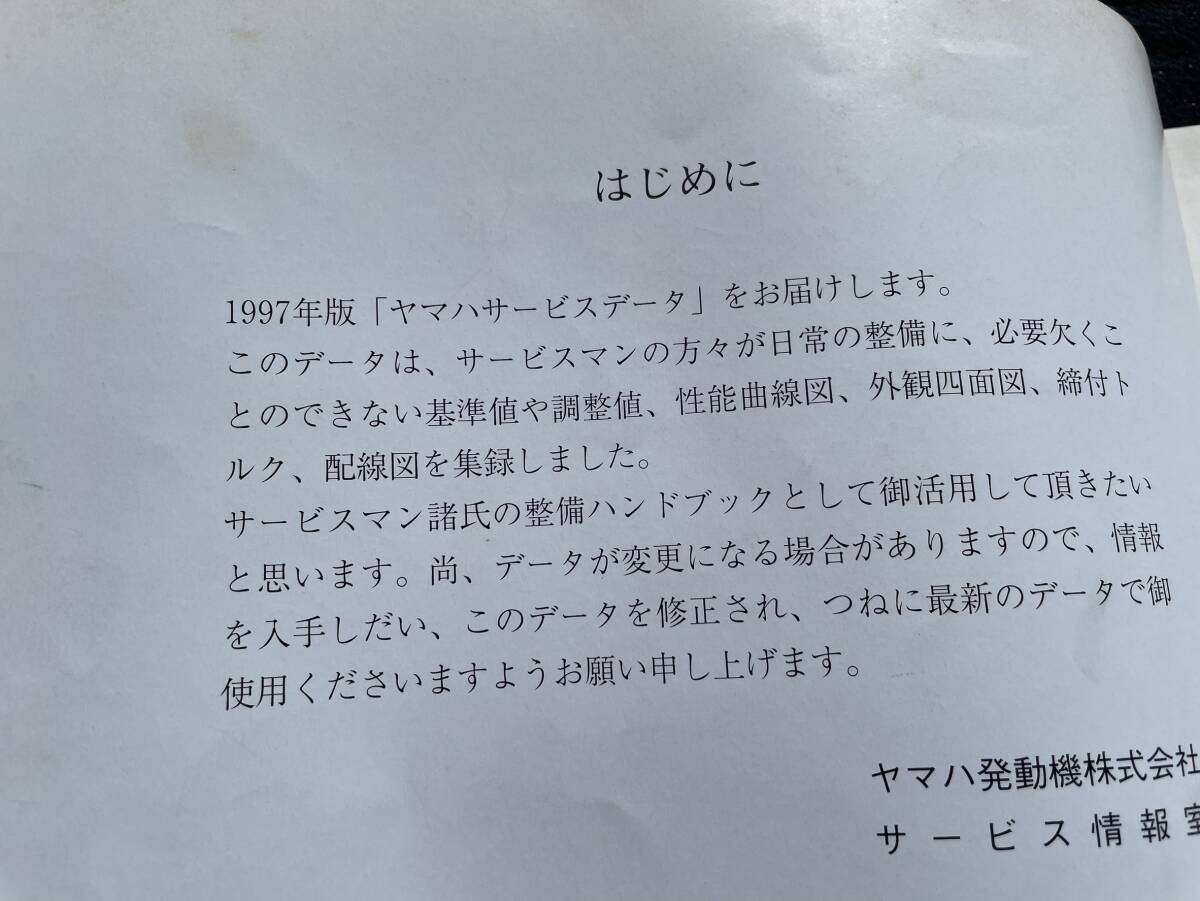 はじめに
1997年版「ヤマハサービスデータ」をお届けします。
このデータは、サービスマンの方々が日常の整備に、必要欠くこ
とのできない基準値や調整値、性能曲線図、外観四面図、締付ト
ルク、配線図を集録しました。
サービスマン諸氏の整備ハンドブックとして御活用して頂きたい
と思います。尚、データが変更になる場合がありますので、情報
を入手しだい、このデータを修正され、つねに最新のデータで御
使用くださいますようお願い申し上げます。
ヤマハ発動機株式会社
サービス情報室